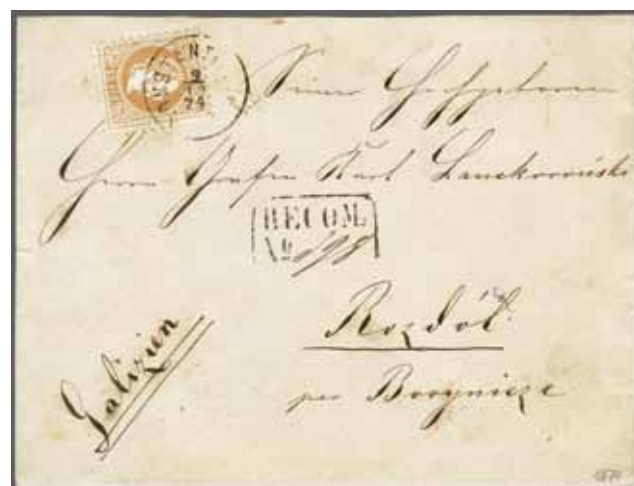 9
74
Seiner Hochgeboren
Herrn Grafen Karl Lanckoroński
RECOM.
No 698
Rozdół
Galizien
per Borynicze
1874